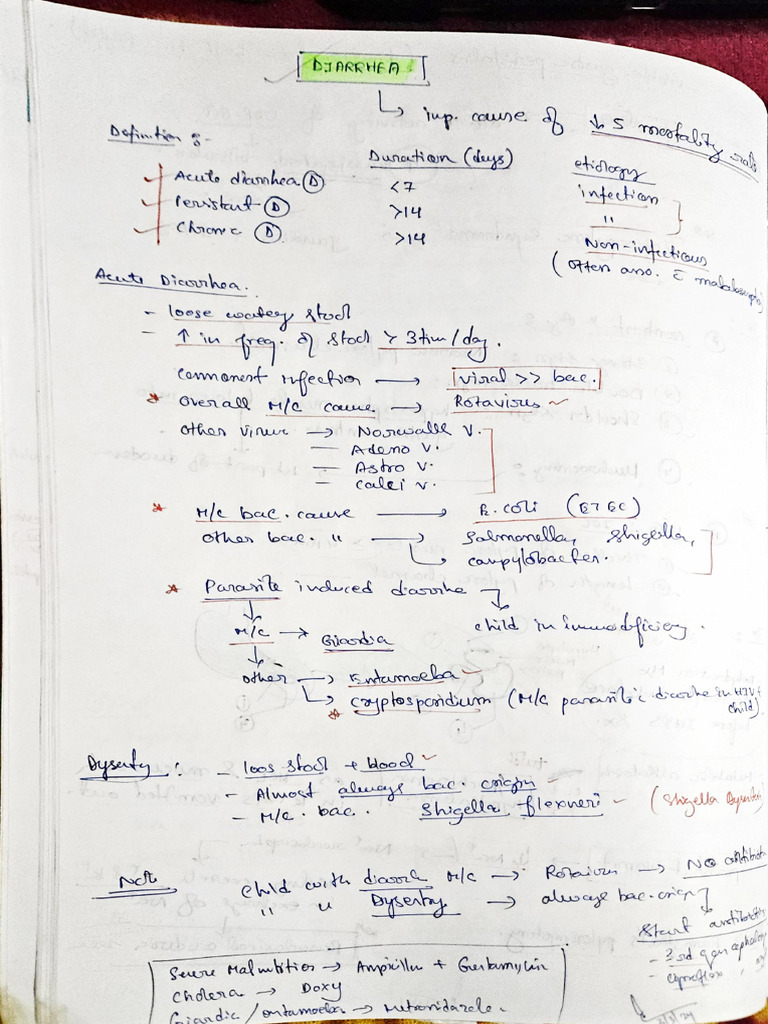 DIARRHEA
↳ imp. cause of ↓ 5 mortality rate
Definitions :-
Duration (days) etiology
Acute diarrhea (D) <7 infection
Persistant (D) >14 "
Chronic (D) >14 Non-infectious
(often asso. c̄ malabsorptio
Acute Diarrhea.
- loose watery stool
- ↑ in freq. of stool > 3 tim/day.
commonest infection → viral >> bac.
* overall M/C cause → Rotavirus
other virus → Norwalk V.
— Adeno V.
— Astro V.
— calci V.
* M/C bac. cause → E. coli (ETEC)
other bac. " → Salmonella, Shigella,
↳ campylobacter.
* Parasite induced diarrhe
↓ ↳ child in immodeficiecy.
M/C → Giardia
↓
other → Entamoeba
↳ cryptosporidium (M/C parasitic diarrhe in HIV+
* child).
Dysentry : - loos stool + blood
- Almost always bac. origin
- M/C bac. Shigella flexneri (Shigella Dysentri
Note child with diarrh M/C → Rotavirus → NO antibiot
" " Dysentry → always bac. origin
Start antibiotic
- 3rd gen cephalo
- ciproflox
Severe Malnutrition → Ampicillin + Gentamycin
Cholera → Doxy
Giardia/entamoeba → Metronidazole.